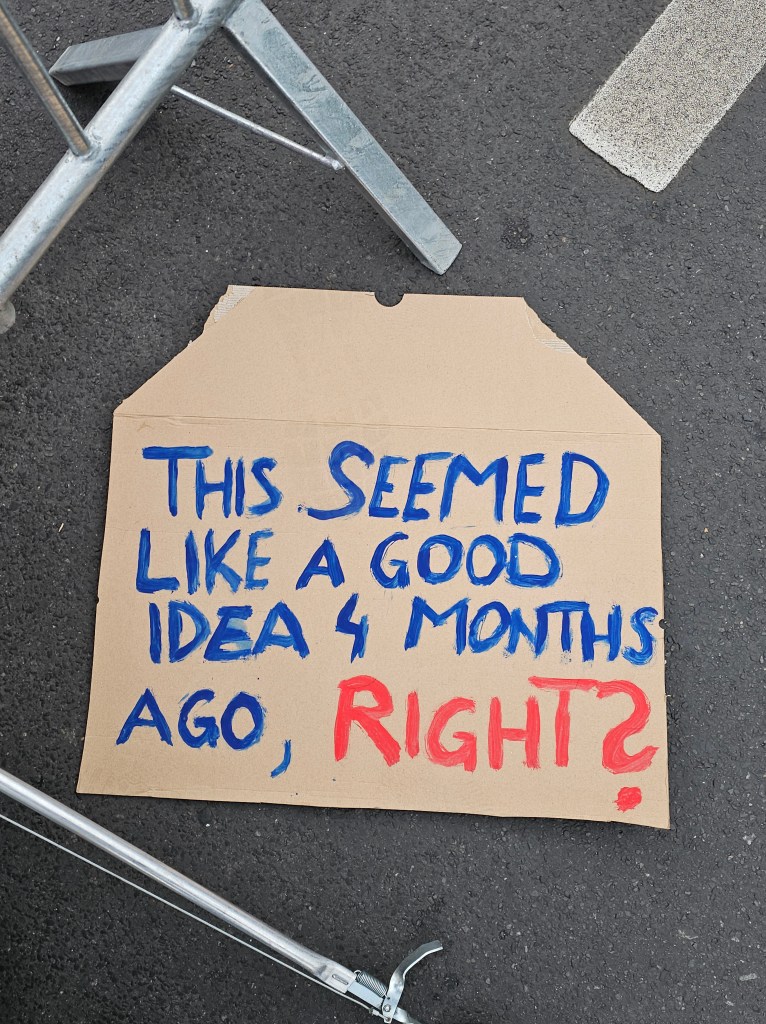 THIS SEEMED
LIKE A GOOD
IDEA 4 MONTHS
AGO, RIGHT?